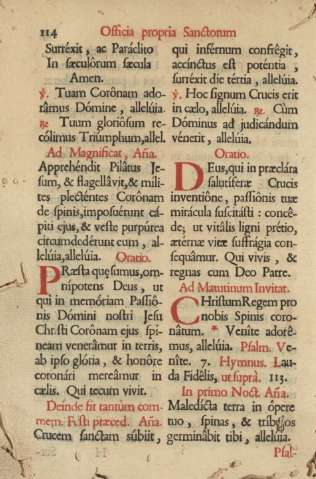 114 Officia propria Sanctorum
Surréxit, ac Paráclito
In sæculórum sæcula
Amen.
℣. Tuam Corônam ado-
râmus Dómine, allelúia.
℟. Tuum gloriósum re-
cólimus Triumphum, allel.
Ad Magnificat, Aña.
Apprehéndit Pilâtus Je-
sum, & flagellâvit, & mili-
tes plecténtes Corónam
de spinis, imposuérunt cá-
piti ejus, & veste purpúrea
circumdedérunt eum, al-
lelúia, allelúia. Oratio.
PRæsta quęsumus, om-
nipotens Deus, ut
qui in memóriam Passió-
nis Dómini nostri Jesu
Christi Corônam ejus spi-
neam venerâmur in terris,
ab ipso glória, & honôre
coronári mereâmur in
cælis. Qui tecum vivit.
Deinde fit tantùm com-
mem. Festi præced. Aña.
Crucem sanctam súbiit,
qui infernum confrêgit,
accinctus est poténtia,
surréxit die tértia, allelúia.
℣. Hoc signum Crucis erit
in cælo, allelúia. ℟. Cùm
Dóminus ad judicándum
vénerit, allelúia.
Oratio.
DEus, qui in præclára
salutíferæ Crucis
inventióne, passiónis tuæ
mirácula suscitâsti: concê-
de; ut vitális ligni prétio,
ætérnæ vitæ suffrágia con-
sequâmur. Qui vivis, &
regnas cum Deo Patre.
Ad Matutinum Invitat.
CHristum Regem pro
nobis Spinis coro-
nâtum. * Venîte adorê-
mus, allelúia. Psalm. Ve-
nîte. 7. Hymnus. Lau-
da Fidêlis, ut suprà. 113.
In primo Noct. Aña.
Maledícta terra in ópere
tuo, spinas, & tríbulos
germinâbit tibi, allelúia.
Psal-